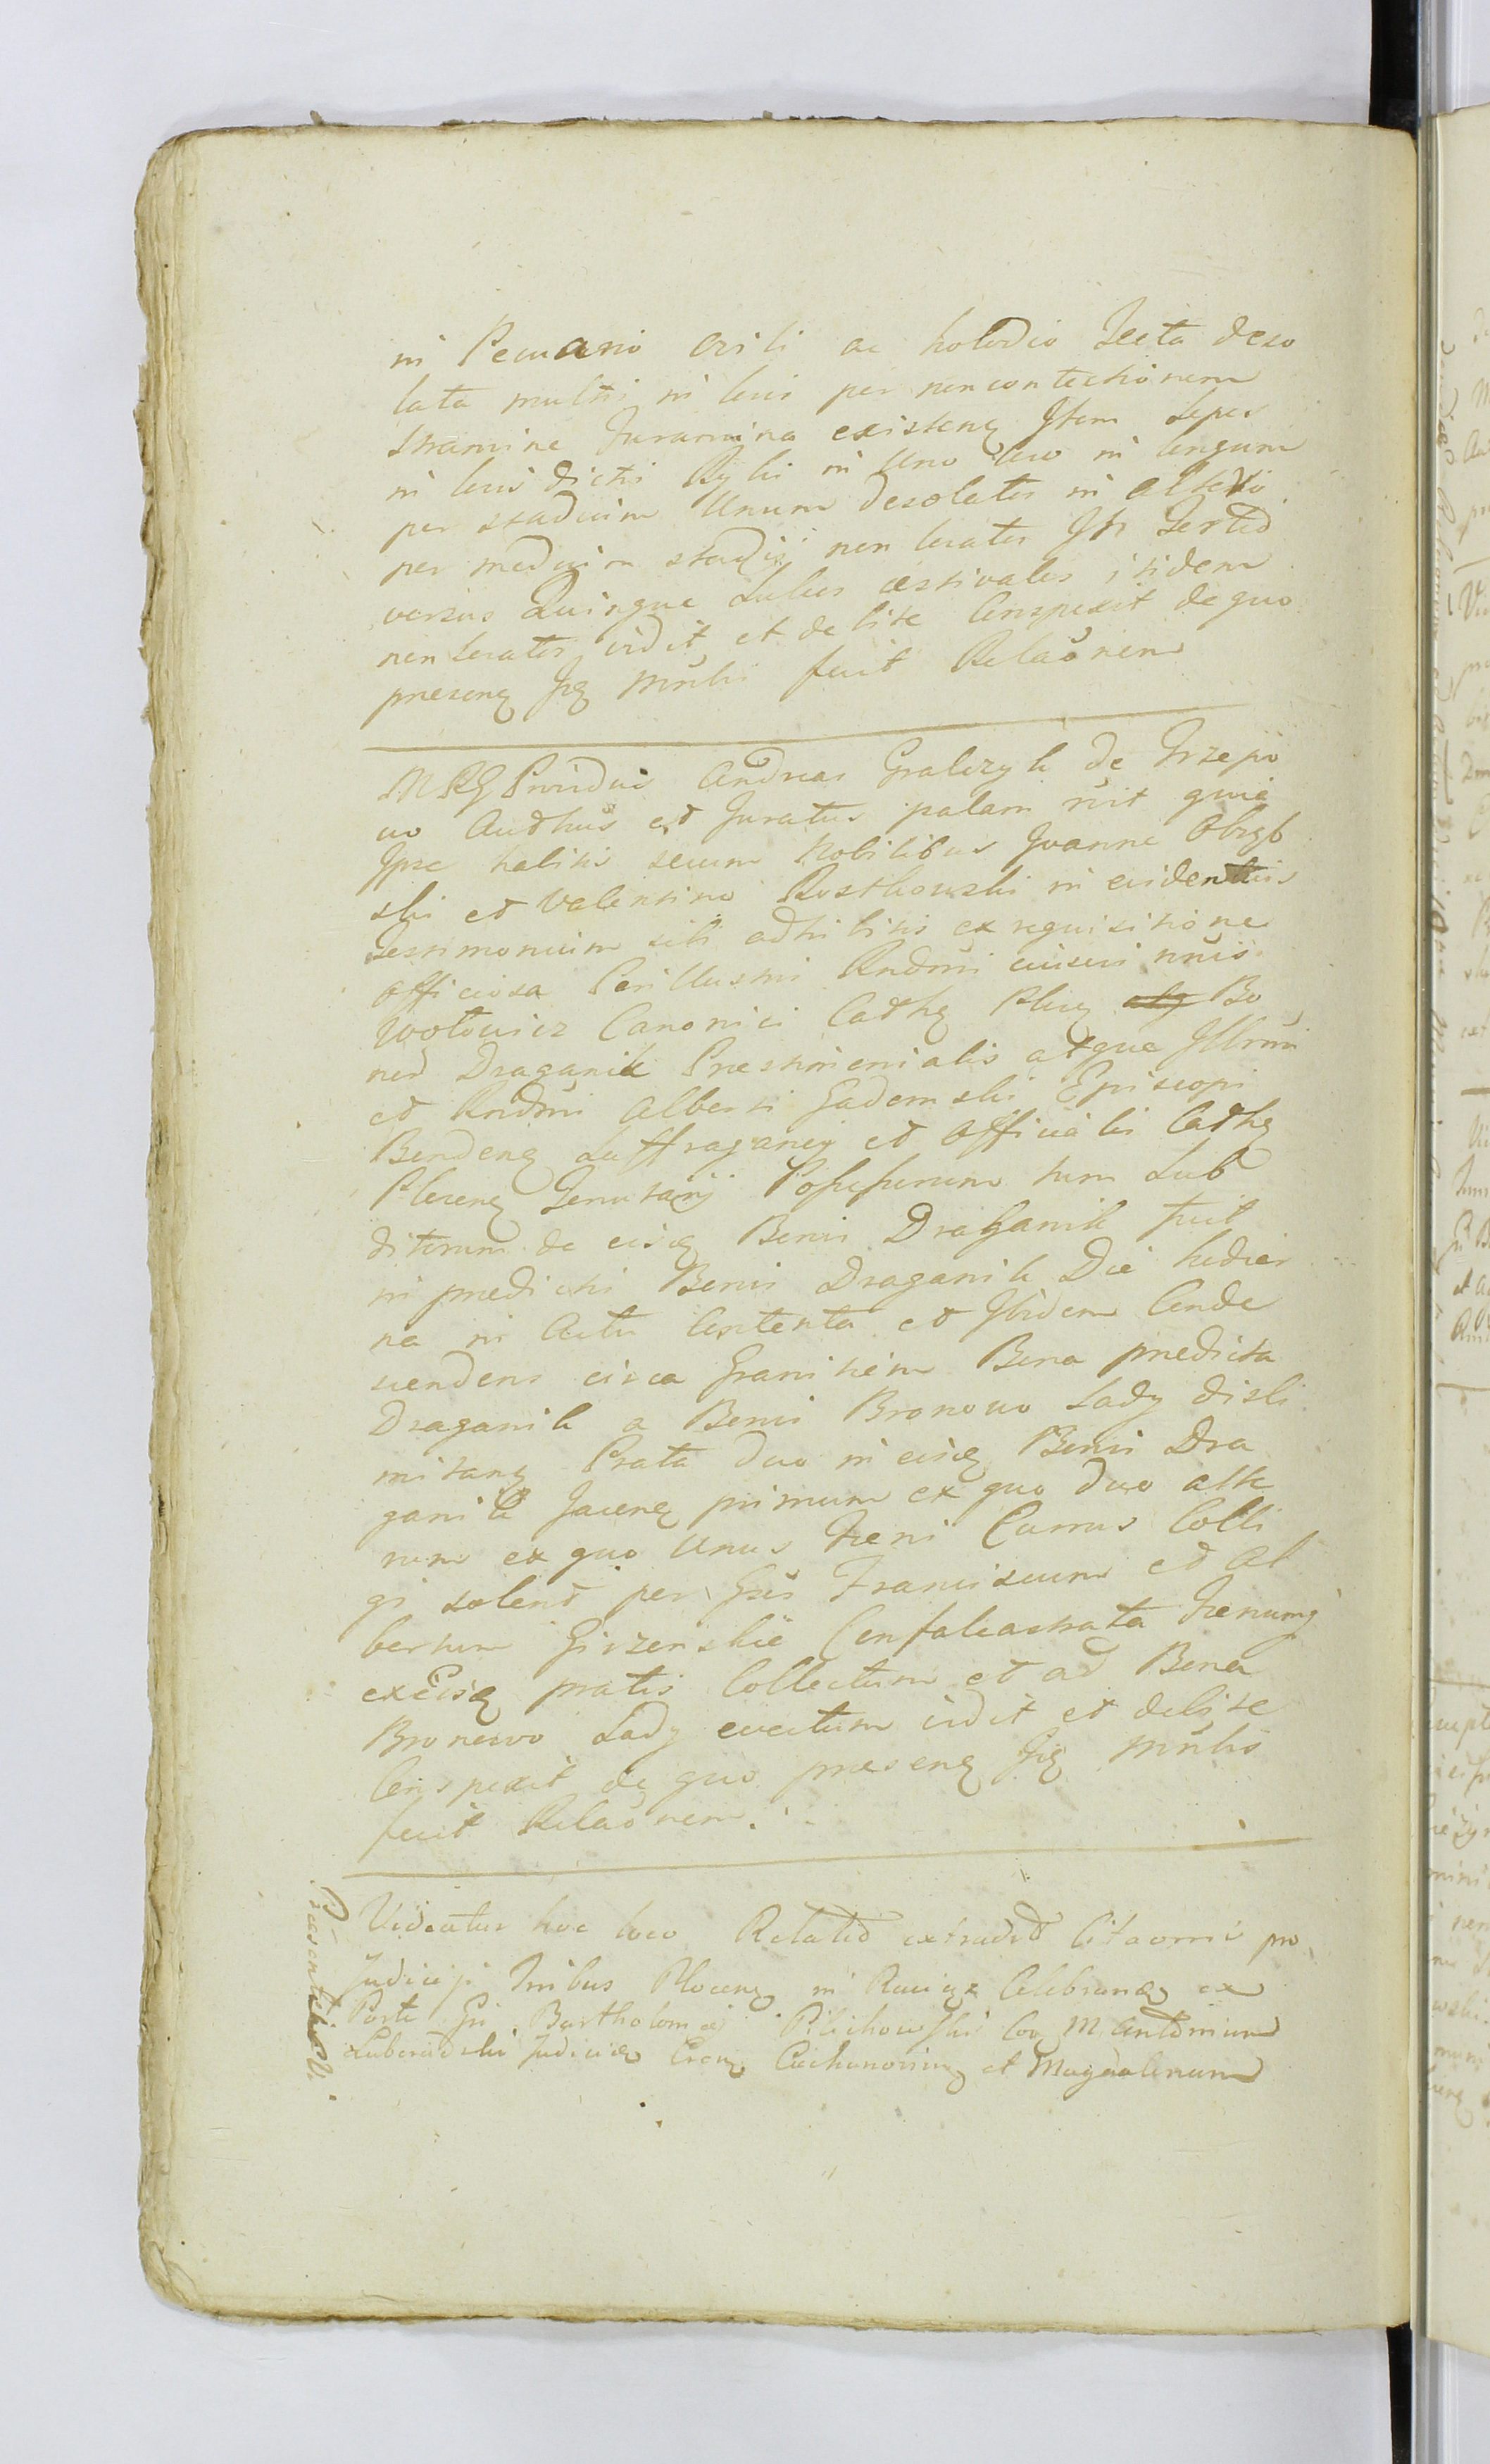 in Pecuario Ovili ac holodio Tecta deso
lata multis in locis per non contectionem
Stramine Foramina existenę Item Sepes
in locis dictis Rylki in Uno loco in longum
per stadium Unum desolatas in altero
per medium stadij non locatas Itt Tertid
versus Quinque Sulcos aestivales itidem
non locatas vidit et de lite Conspexit de quo
presenę Jtę Mnlis fecit Relaōnem
MRG Providus Andreas Gralczyk de Trzepo
wo Authus et Juratus palam rūit quia
Ipse habitis secum Nobilibus Joanne Obręb
ski et Valentino Rostkowski in evidentius
Testimonium sibi adhibitis ex requisitione
Officiosa Perillustri Rndmi
Wołowicz Canonici Cathę Plocę Bo
nor Draganik Prestimonialis atque Illrmi
et Rndmi Alberti Gadomski Episcopi
Bendenę Suffraganei et Officialis Cathę
Plocenę Tenutarij Possessorum tum Sub
ditorum de eisdę Bonis Draganik fuit
in predictis Bonis Draganik Die hodier
na in Actu Contenta et Ibidem Conde
scendens circa Granitiem Bona predicta
Draganik a Bonis Bronowo Sady disli
mitanę Prata duo in eisdę Bonis Dra
ganik Jacenę primum ex quo duo alte
rum ex quo Unus Foeni Currus Colli
gi solent per Gsos Franciscum et Al
bertum Girzenskie Confalcastrata Foenumq
ex Eisdę pratis Collectum et ad Bona
Bronowo Sady evectum vidit et de lite
Conspexit de quo presenę Jtę Mnlis
fecit Relaōnem.
Videatur hoc loco Relatio extradit Citaōnis pro
Judicijs Tribus Plocenę in Raciąz Celebranę ex
Parte Gsi Bartholomei Pilichowski Coę M Antonium
Luboradzki Judicem Trę Ciechanovienę et Magdalenam